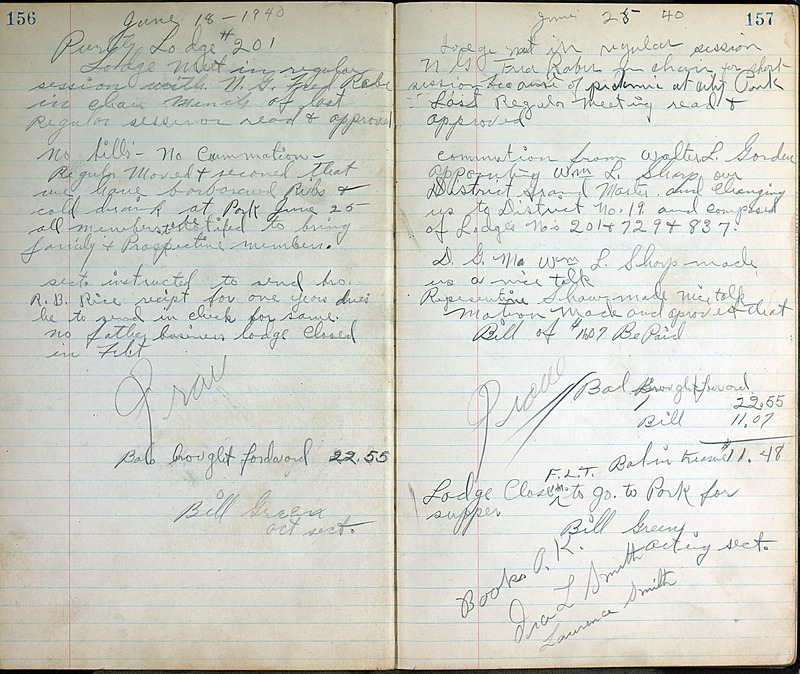 156
June 18 - 1940
Purity Lodge #201
Lodge met in regular
session with N.G. Fred Rabe
in chair Minets of last
Regular session read & approved
No bills - No Cummation -
Regular Moved & second that
we have barbarcued Ribs &
cold drink at Park June 25
all members notifed to bring
family & Prospective members.
sect. instructed to send bro.
R.B. Rice recipt for one years dues
he to send in check for same.
no father business lodge closed
in F L T
Bal brought fordward 22.55
Bill Green
act sect.
157
June 25 40
Lodge met in regular session
N.G. Fred Raber in chair for short
session because of picknic at city Park
Last Regular meeting read &
approved
commution from Walter L. Gorden
appointing Wm L. Sharp, our
District Grand Master and Changing
us to District No. 19 and composed
of Lodges No's 201 & 729 & 837.
D. G. Ma Wm L. Sharp made
us a nice talk
Representive Shaw made nice talk
Motion Made and aproved that
Bill of $11.07 Be Paid
Bal Brought forward
22.55
Bill 11.07
F.L.T. Bal in treasue $11.48
Lodge Closed in to go. to Park for
supper
Bill Green
acting sect.
Books O.K.
Ira L Smith
Lawrence Smith